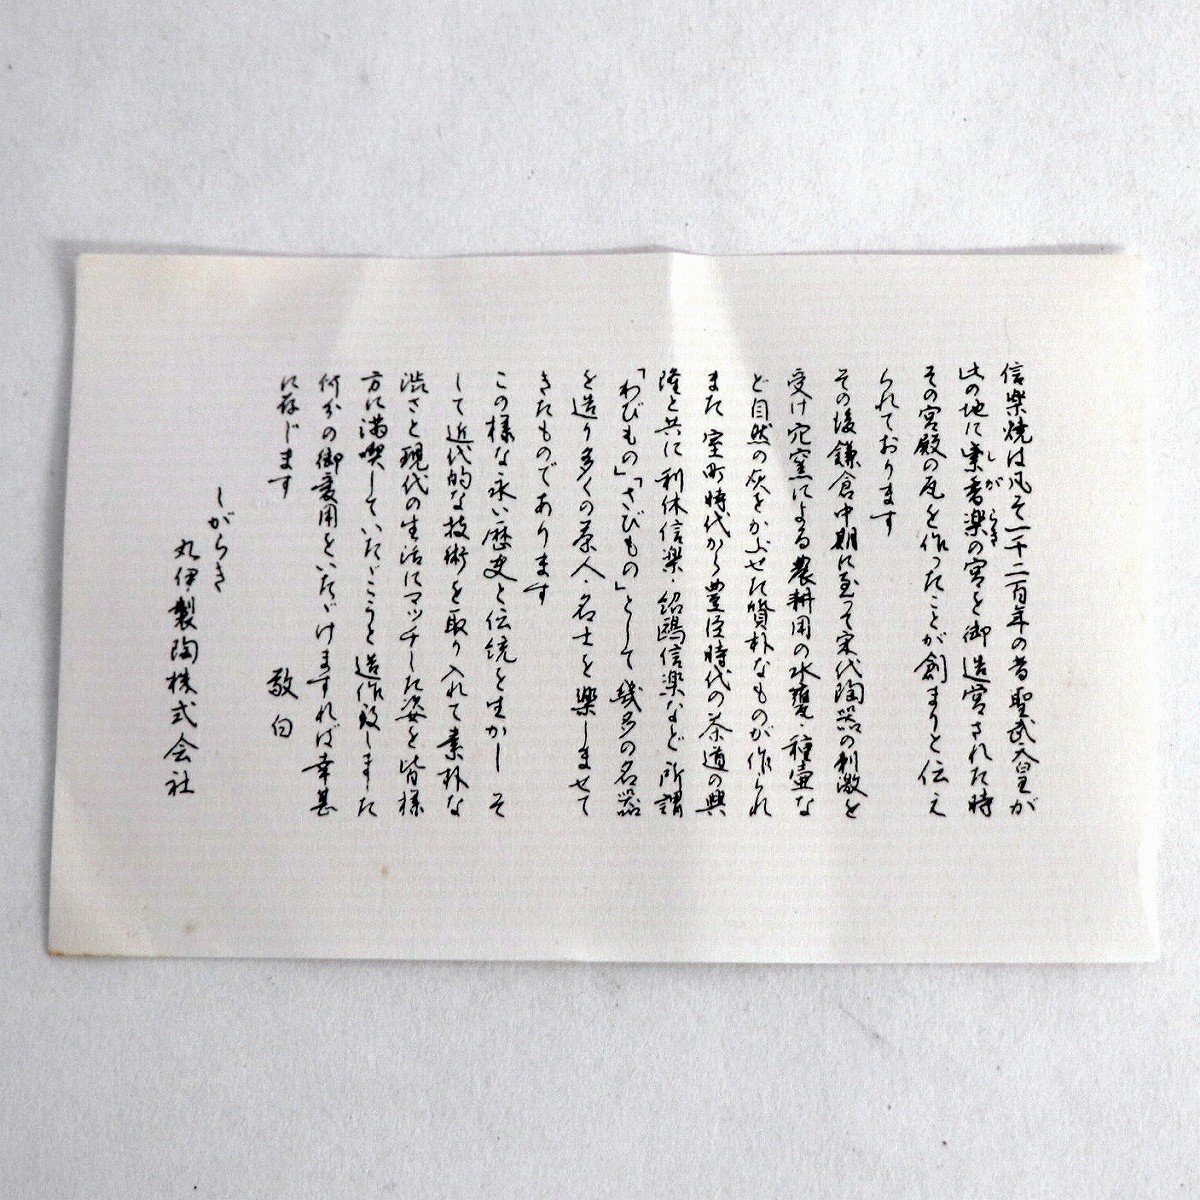 信楽焼は凡そ一千二百年の昔聖武天皇が
此の地に紫香楽の宮を御造宮された時
しがらき
その宮殿の瓦を作ったことが創まりと伝え
られております
その後鎌倉中期に至って宋代陶器の刺激を
受け穴窯による農耕用の水甕・種壷な
ど自然の灰をかぶせた質朴なものが作られ
また室町時代から豊臣時代の茶道の興
隆と共に利休信楽・紹鴎信楽など所謂
「わびもの」「さびもの」として幾多の名器
を造り多くの茶人・名士を楽しませて
きたものであります
この様な永い歴史と伝統を生かし そ
して近代的な技術を取り入れて素朴な
渋さと現代の生活にマッチした姿を皆様
方に満喫していただこうと造作致しました
何分の御愛用をいただけますれば幸甚
に存じます
敬白
しがらき
丸伊製陶株式会社